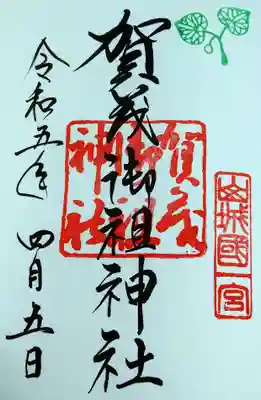 山城國一宮
賀茂御祖神社
賀茂
御祖
神社
令和五年
四月五日